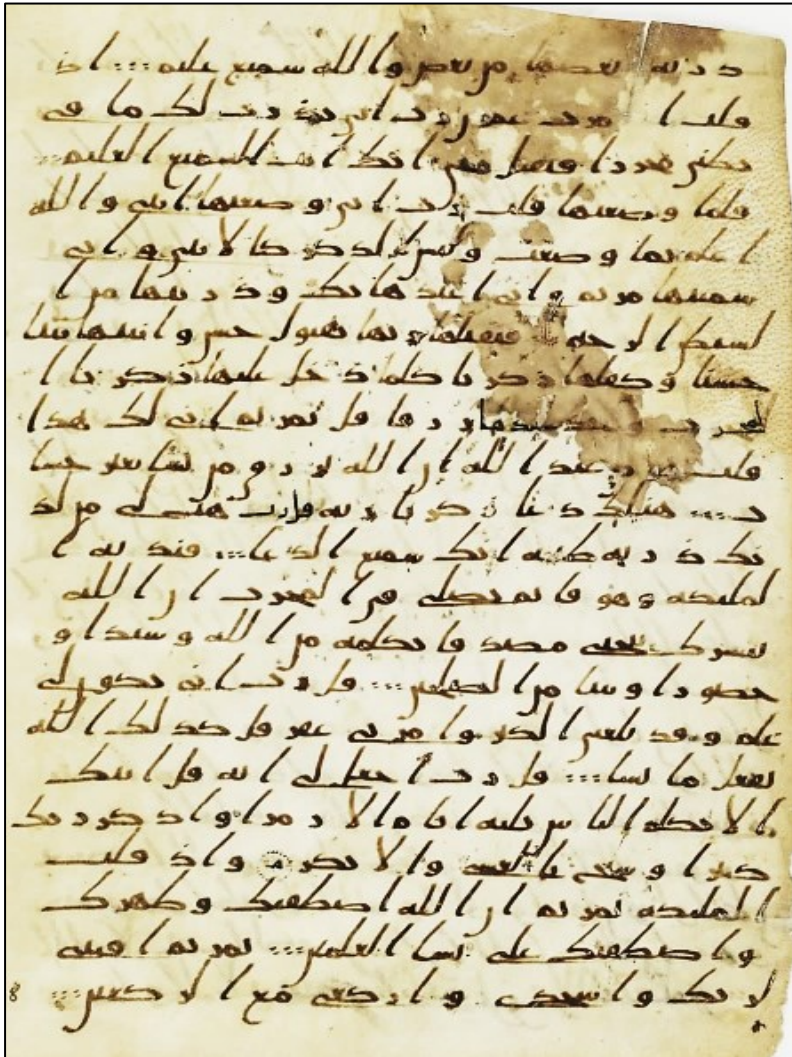 ذريه بعضها من بعض والله سميع عليم اذ
قلت ا مرت عمرن رب اني نذرت لك ما في
بطني محررا فتقبل مني انك انت السميع العليم
فلما وضعتها قلت رب اني وضعتها انثى والله
اعلم بما وضعت وليس الذكر كالانثى واني
سميتها مريم واني اعيذها بك وذريتها من ا
لشيطن الرجيم فتقبلها ربها بقبول حسن وانبتها نباتا
حسنا وكفلها زكريا كلما دخل عليها زكريا ا
لمحرب عندها رزقا قل يمريم انى لك هذا
قلت هو من عند الله ان الله يرزق من يشا بغير حسا
ب هنلك دعا زكريا ربه قل رب هب لي من لد
نك ذريه طيبه انك سميع الدعا فندته ا
لمليكه وهو قايم يصلي في المحرب ان الله
يبشرك بيحيى مصدقا بكلمه من الله وسيدا و
حصورا ونبيا من الصلحين قل رب انى يكون لي
غلم وقد بلغني الكبر وامرتي عقر قل كذلك الله
يفعل ما يشا قل رب اجعل لي ايه قل ايتك
الا تكلم الناس ثلثه ايام الا رمزا واذكر ربك
كثيرا وسبح بالعشي والابكر واذ قلت
المليكه يمريم ان الله اصطفيك وطهرك
واصطفيك على نسا العلمين يمريم اقنتي
لربك واسجدي واركعي مع الركعين